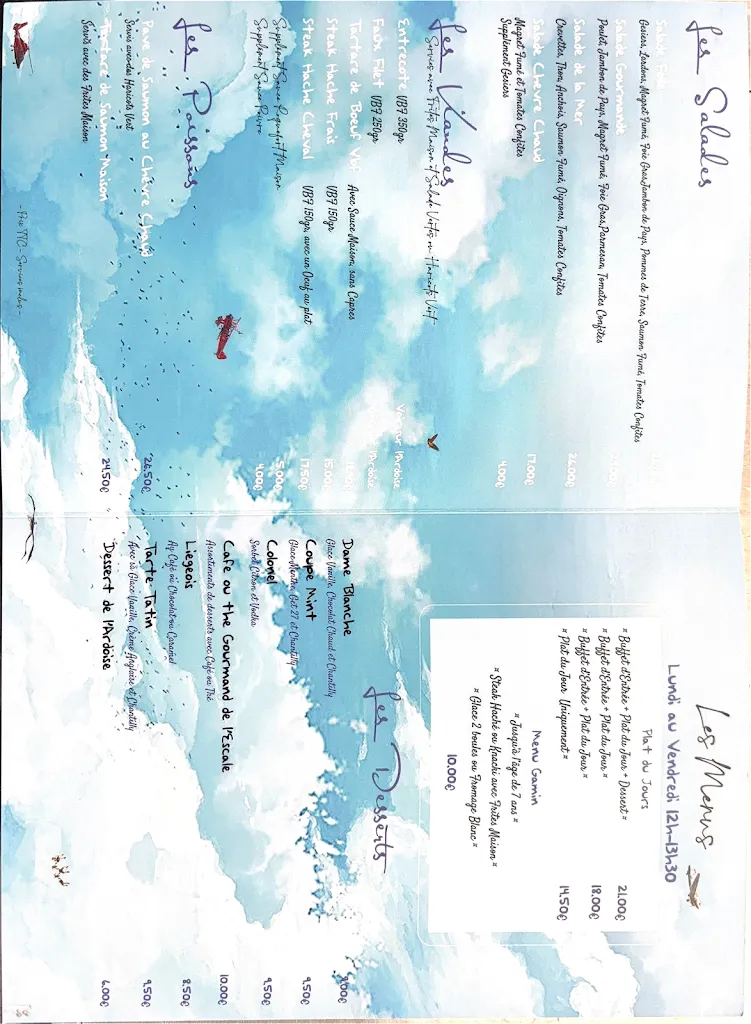 Les Salades
Salade
Gesiers, Lardons, Magret Fumé, Foie Gras, Jambon de Pays, Pommes de Terre, Saumon Fumé, Tomates Confites
Salade Gourmande
Poulet, Jambon de Pays, Magret Fumé, Foie Gras, Parmesan, Tomates Confites
Salade de la Mer 26.50€
Crevettes, Thon, Anchois, Saumon Fumé, Oignons, Tomates Confites
Salade Chevre Chaud 17.00€
Magret Fumé et Tomates Confites
Supplement Gesiers 4.00€
Les Viandes
Servies avec Frites Maison et Salade Vertes ou Haricots Vert
Entrecote VBF 350gr Voir sur l'Ardoise
Faux Filet VBF 250gr l'Ardoise
Tartare de Boeuf VBF Avec Sauce Maison, sans Capres
Steak Hache Frais VBF 150gr 15.00€
Steak Hache Cheval VBF 150gr, avec un Oeuf au plat 17.50€
Supplement Sauce Roquefort Maison 5.00€
Supplement Sauce Poivre 4.00€
Les Poissons
Pave de Saumon au Chèvre Chaud 26.50€
Servis avec des Haricots Vert
Tartare de Saumon Maison 24.50€
Servis avec des Frites Maison
- Prix TTC - Services inclus -
Les Menus
Lundi au Vendredi 12h-13h30
Plat du Jours
" Buffet d'Entrée + Plat du Jour + Dessert " 21.00€
" Buffet d'Entrée + Plat du Jour "
" Buffet d'Entrée + Plat du Jour " 18.00€
" Plat du Jour Uniquement " 14.50€
Menu Gamin
" Jusqu'à l'age de 7 ans "
" Steak Haché ou Knacki avec Frites Maison "
" Glace 2 boules ou Fromage Blanc "
10.00€
Les Desserts
Dame Blanche 9.00€
Glace Vanille, Chocolat Chaud et Chantilly
Coupe Mint 9.50€
Glace Menthe, Get 27 et Chantilly
Colonel 9.50€
Sorbet Citron et Vodka
Cafe ou the Gourmand de l'Escale 10.00€
Assortiments de desserts avec Café ou Thé
Liegeois 8.50€
Au Café ou Chocolat ou Caramel
Tarte Tatin 9.50€
Avec sa Glace Vanille, Crème Anglaise et Chantilly
Dessert de l'Ardoise 6.00€